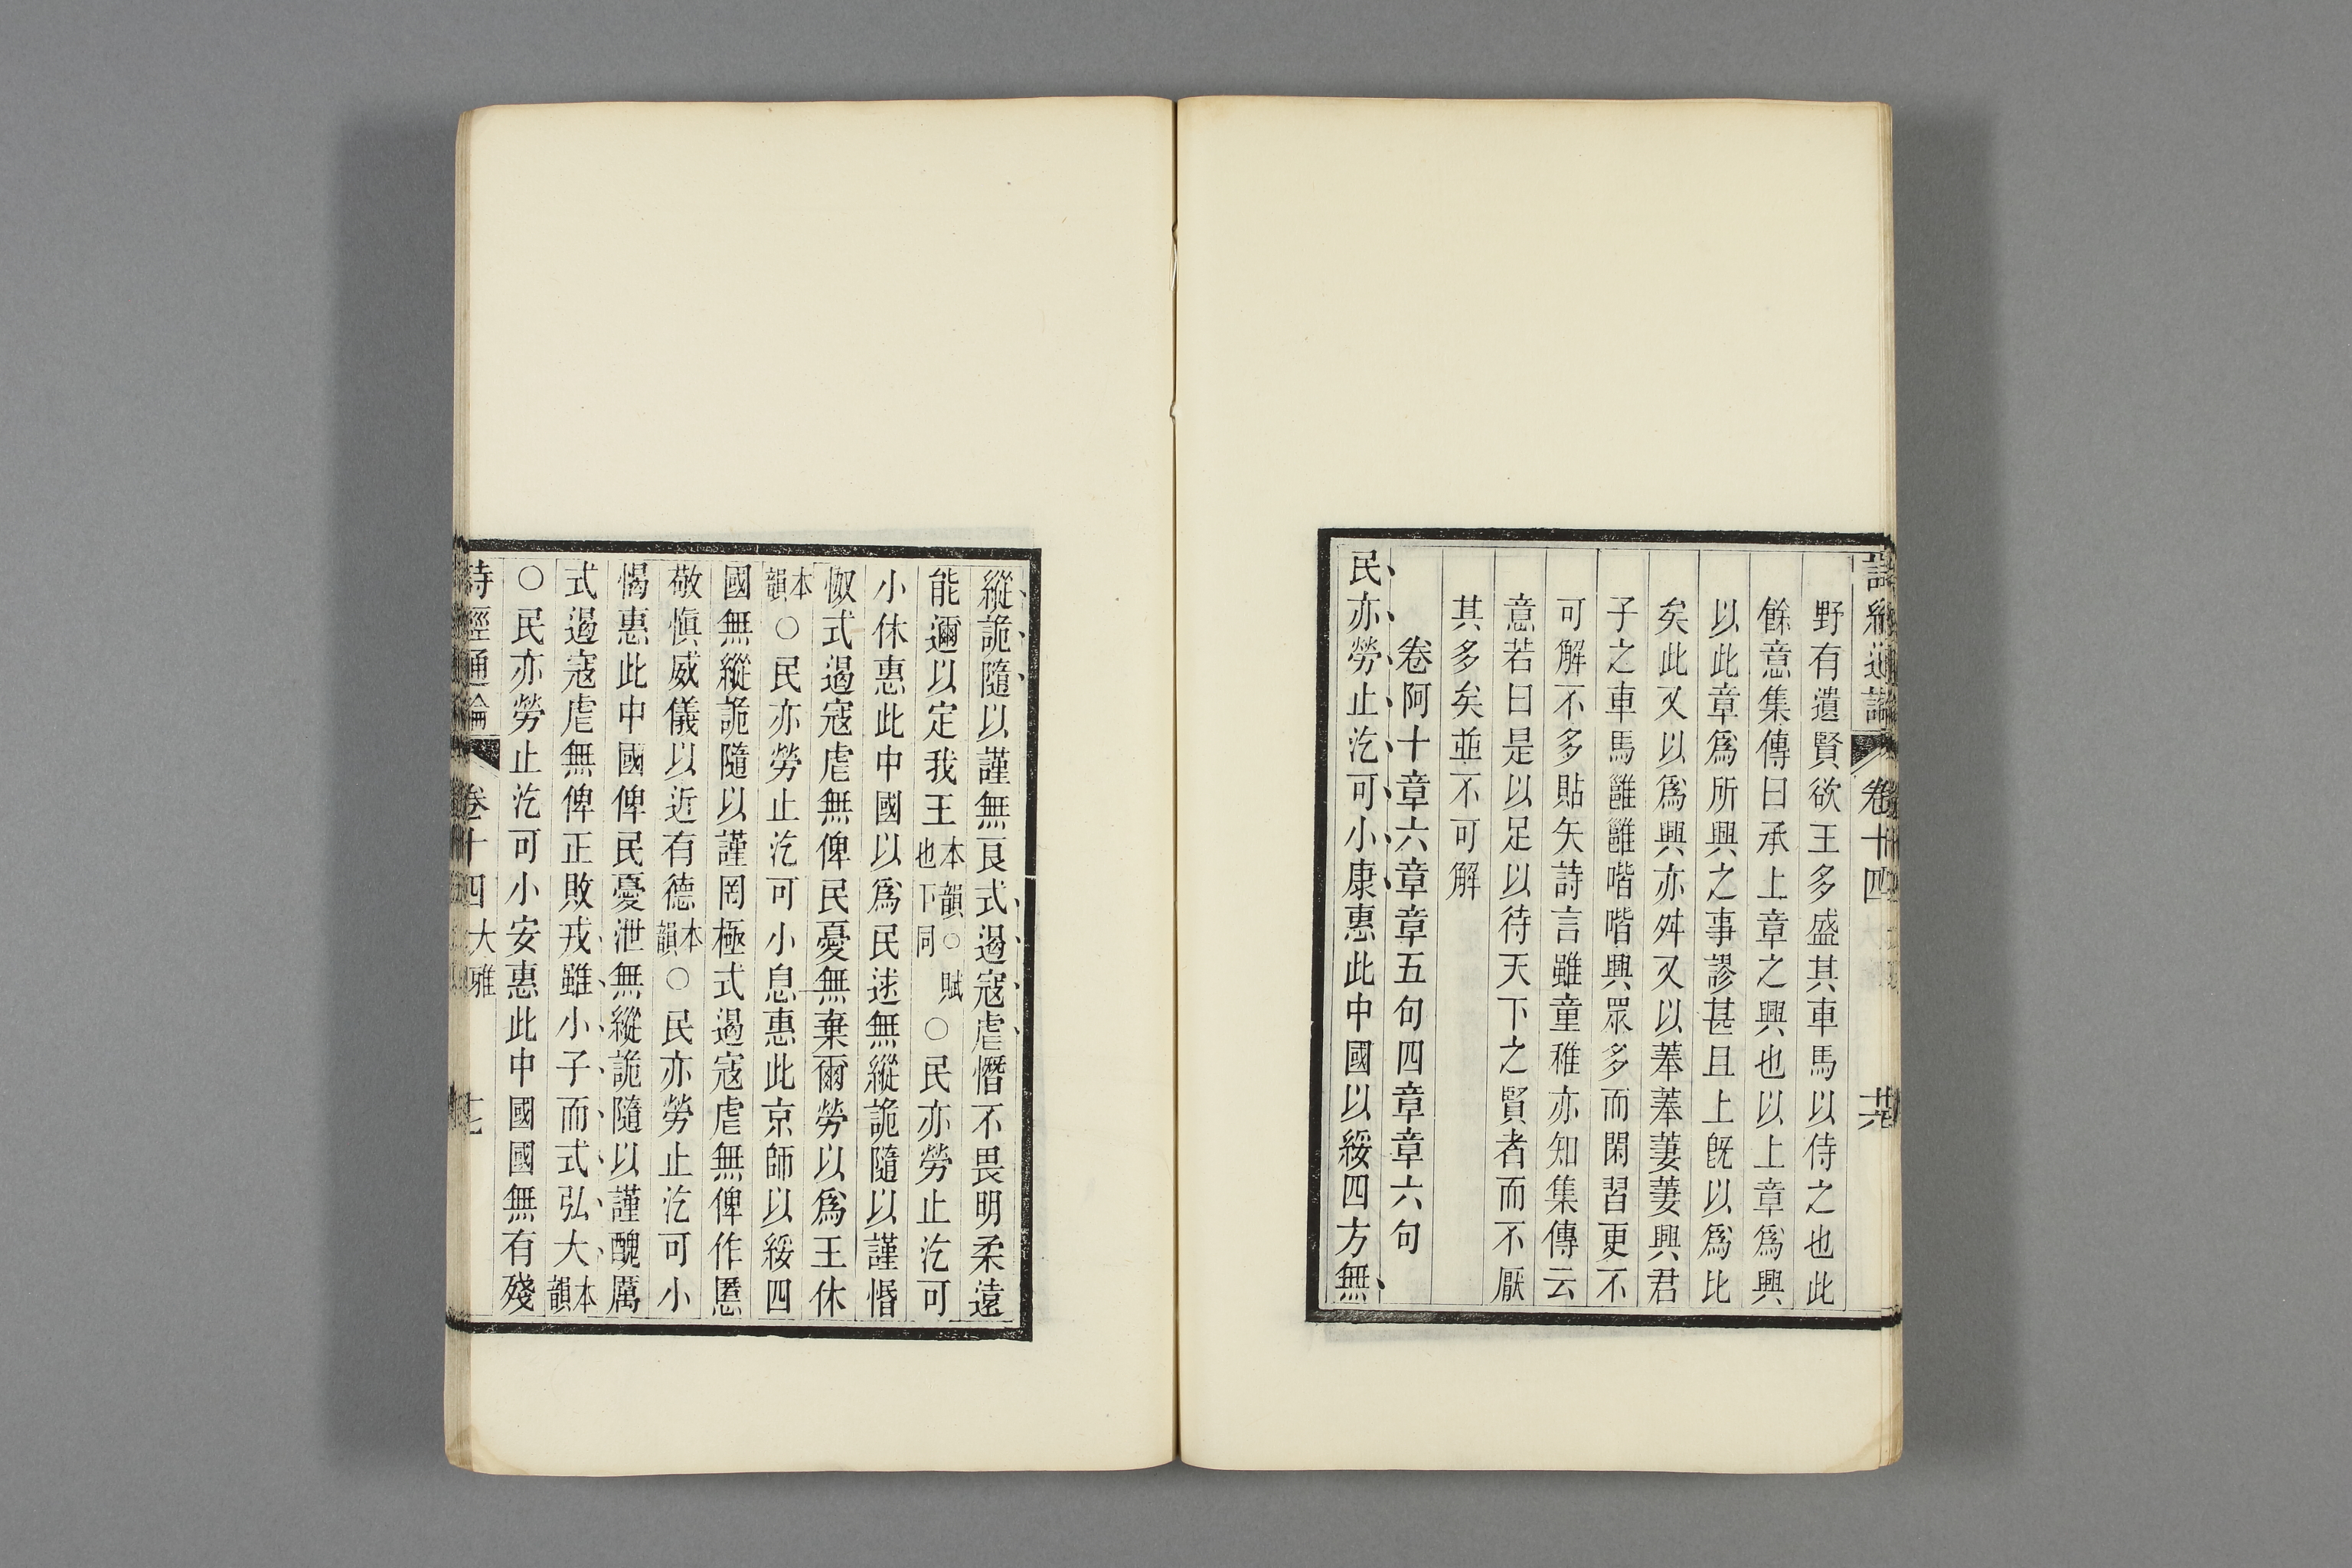 詩經通論 卷十四
野有遺賢欲王多盛其車馬以侍之也此
餘意集傳曰承上章之興也以上章爲興
以此章爲所興之事謬甚且上旣以爲比
矣此又以爲興亦舛又以菶菶萋萋興君
子之車馬雝雝喈喈興眾多而閑習更不
可解不多貼矢詩言雖童稚亦知集傳云
意若曰是以足以待天下之賢者而不厭
其多矣並不可解
卷阿十章六章章五句四章章六句
民亦勞止汔可小康惠此中國以綏四方無
縱詭隨以謹無良式遏寇虐憯不畏明柔遠
能邇以定我王本韻○賦也下同○民亦勞止汔可
小休惠此中國以爲民逑無縱詭隨以謹惛
怓式遏寇虐無俾民憂無棄爾勞以爲王休
本韻○民亦勞止汔可小息惠此京師以綏四
國無縱詭隨以謹罔極式遏寇虐無俾作慝
敬慎威儀以近有德本韻○民亦勞止汔可小
愒惠此中國俾民憂泄無縱詭隨以謹醜厲
式遏寇虐無俾正敗戎雖小子而式弘大本韻
○民亦勞止汔可小安惠此中國國無有殘
詩經通論 卷十四 大雅